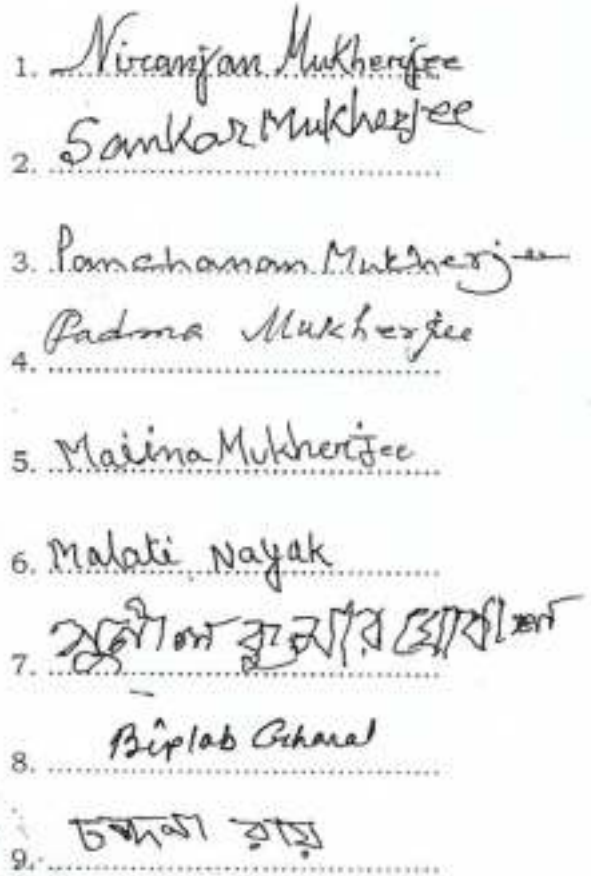 1. Niranjan Mukherjee
2. Sankar Mukherjee
3. Panchanan Mukherjee
4. Padma Mukherjee
5. Maiina Mukherjee
6. Malati Nayak
7. সুনীল কুমার ঘোষাল
8. Biplab Ghosal
9. চন্দনা রায়